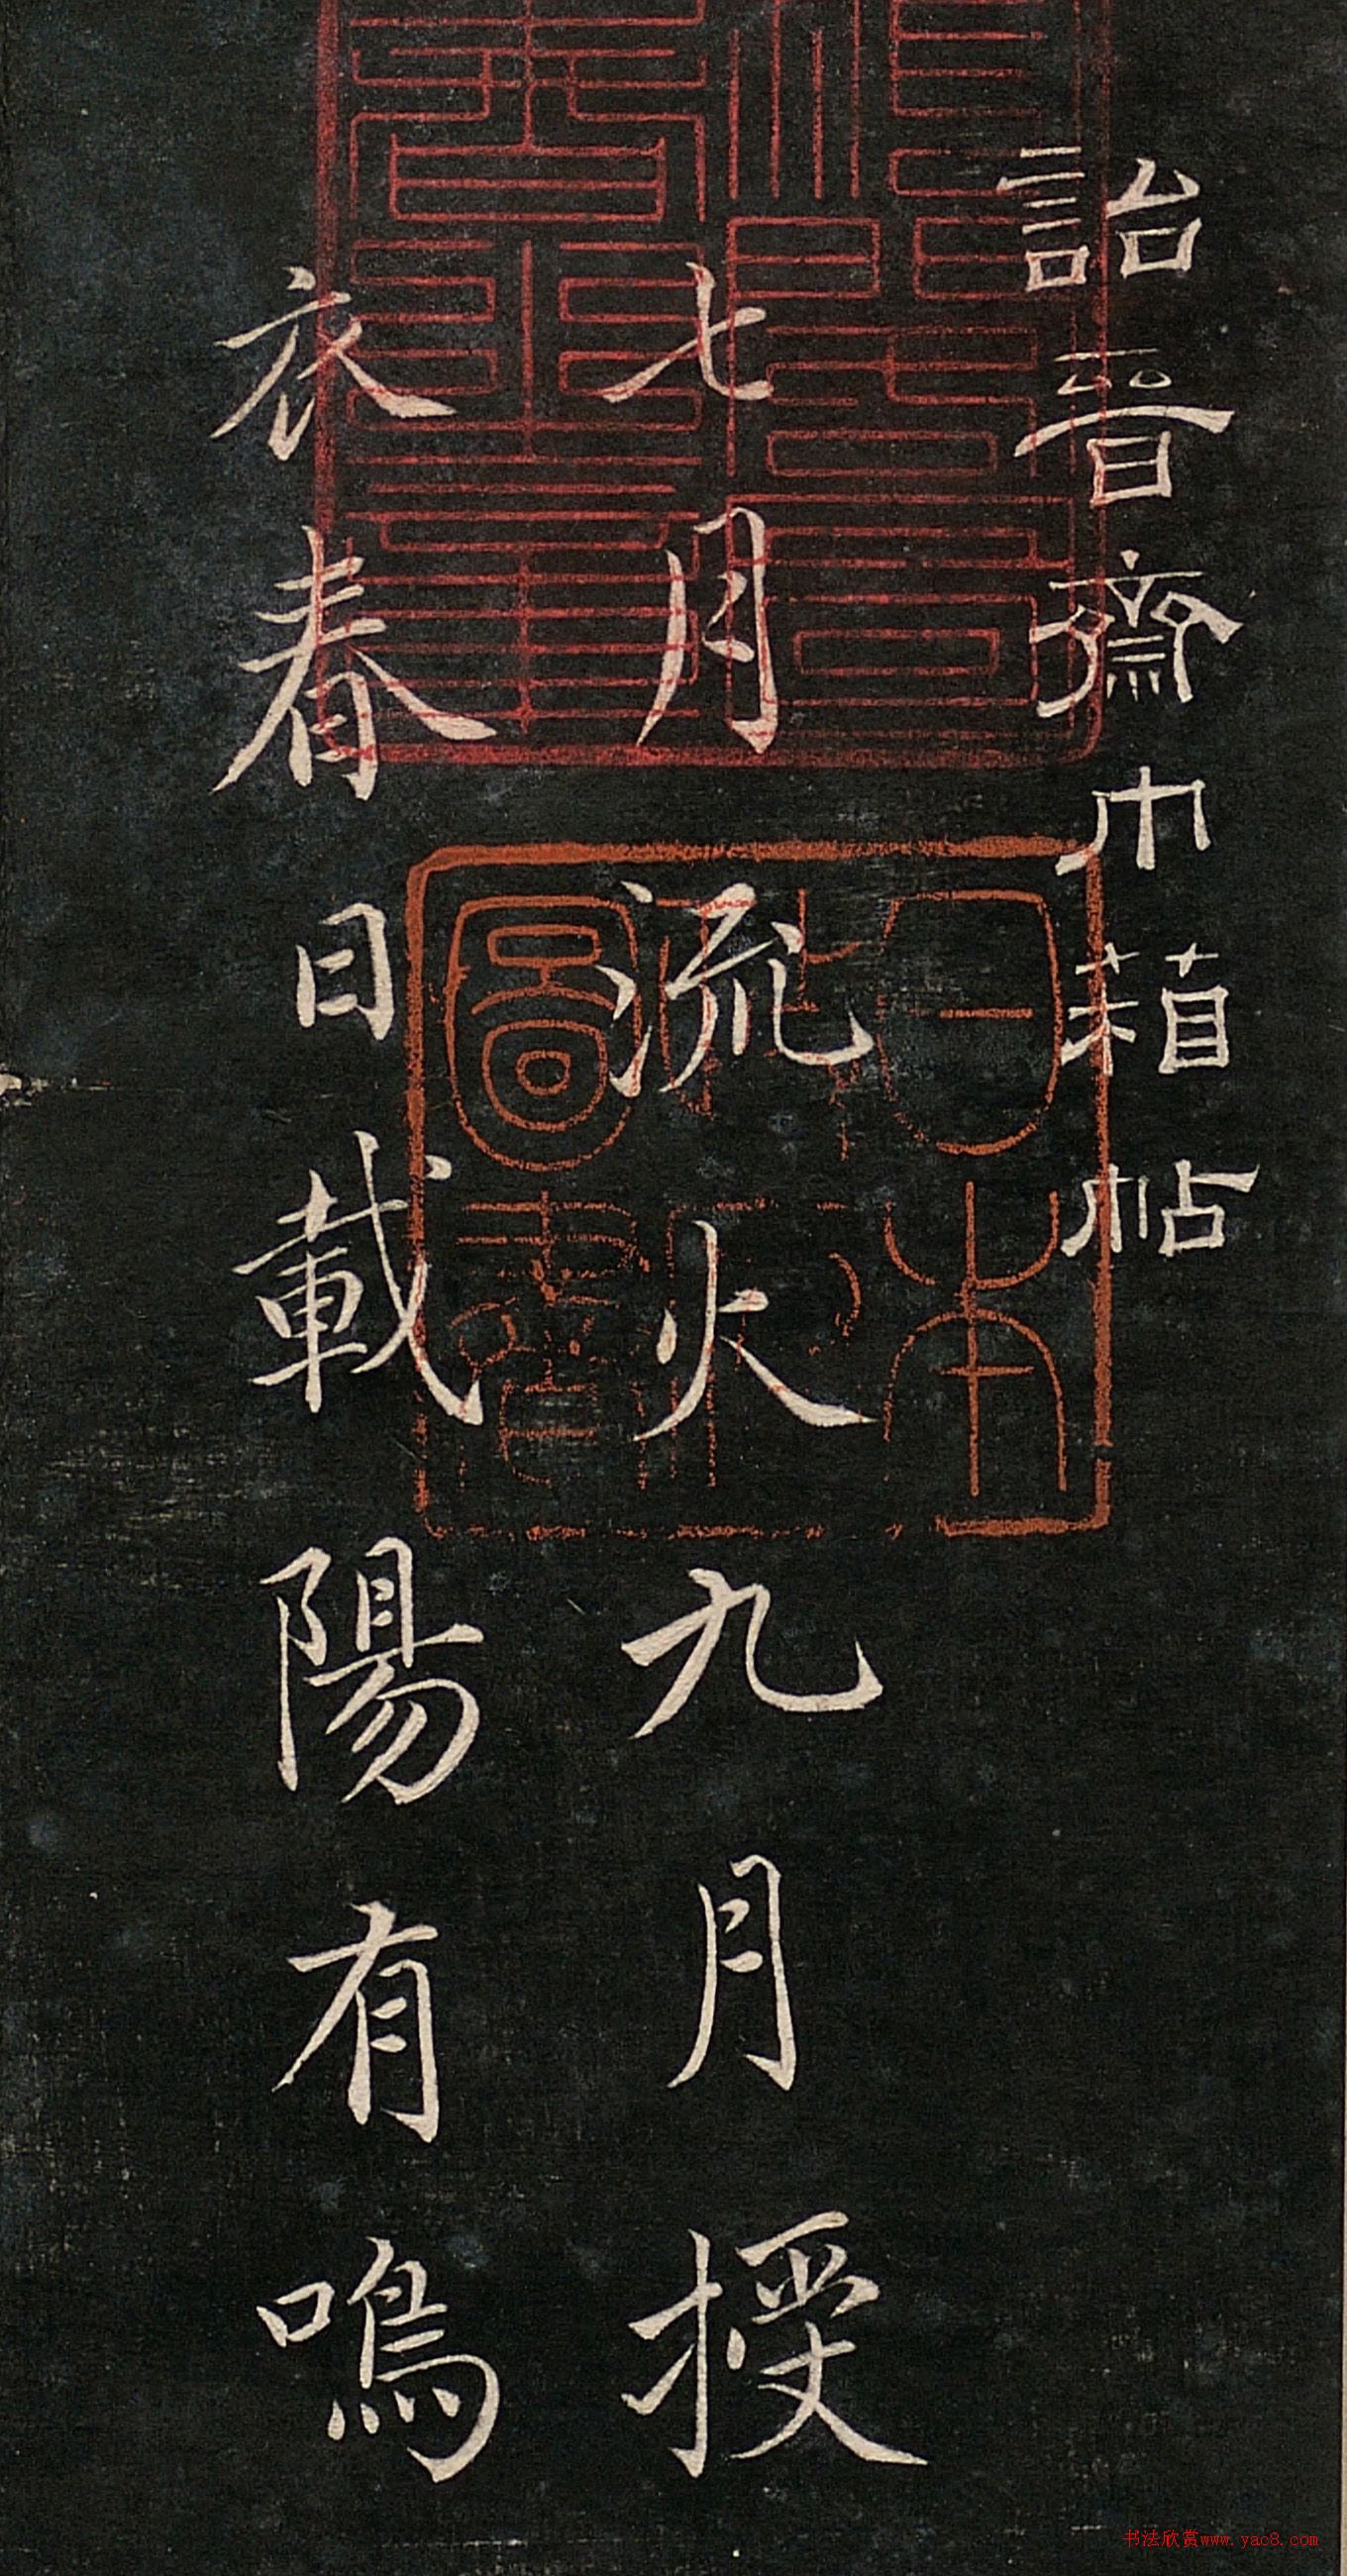 詒晉齋巾箱帖
七月流火九月授
衣春日載陽有鳴
日本
圖書
书法欣赏www.yac8.com